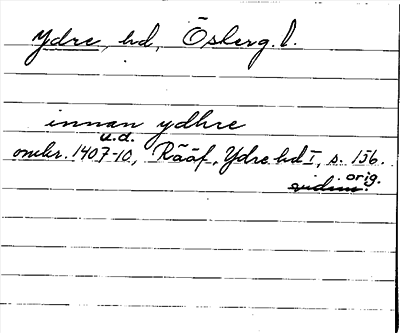 Ydre, hd, Österg. l.
innan ydhre
u.d.
omkr. 1407-10, Rääf, Ydre hd I, s. 156.
orig.
vidim.